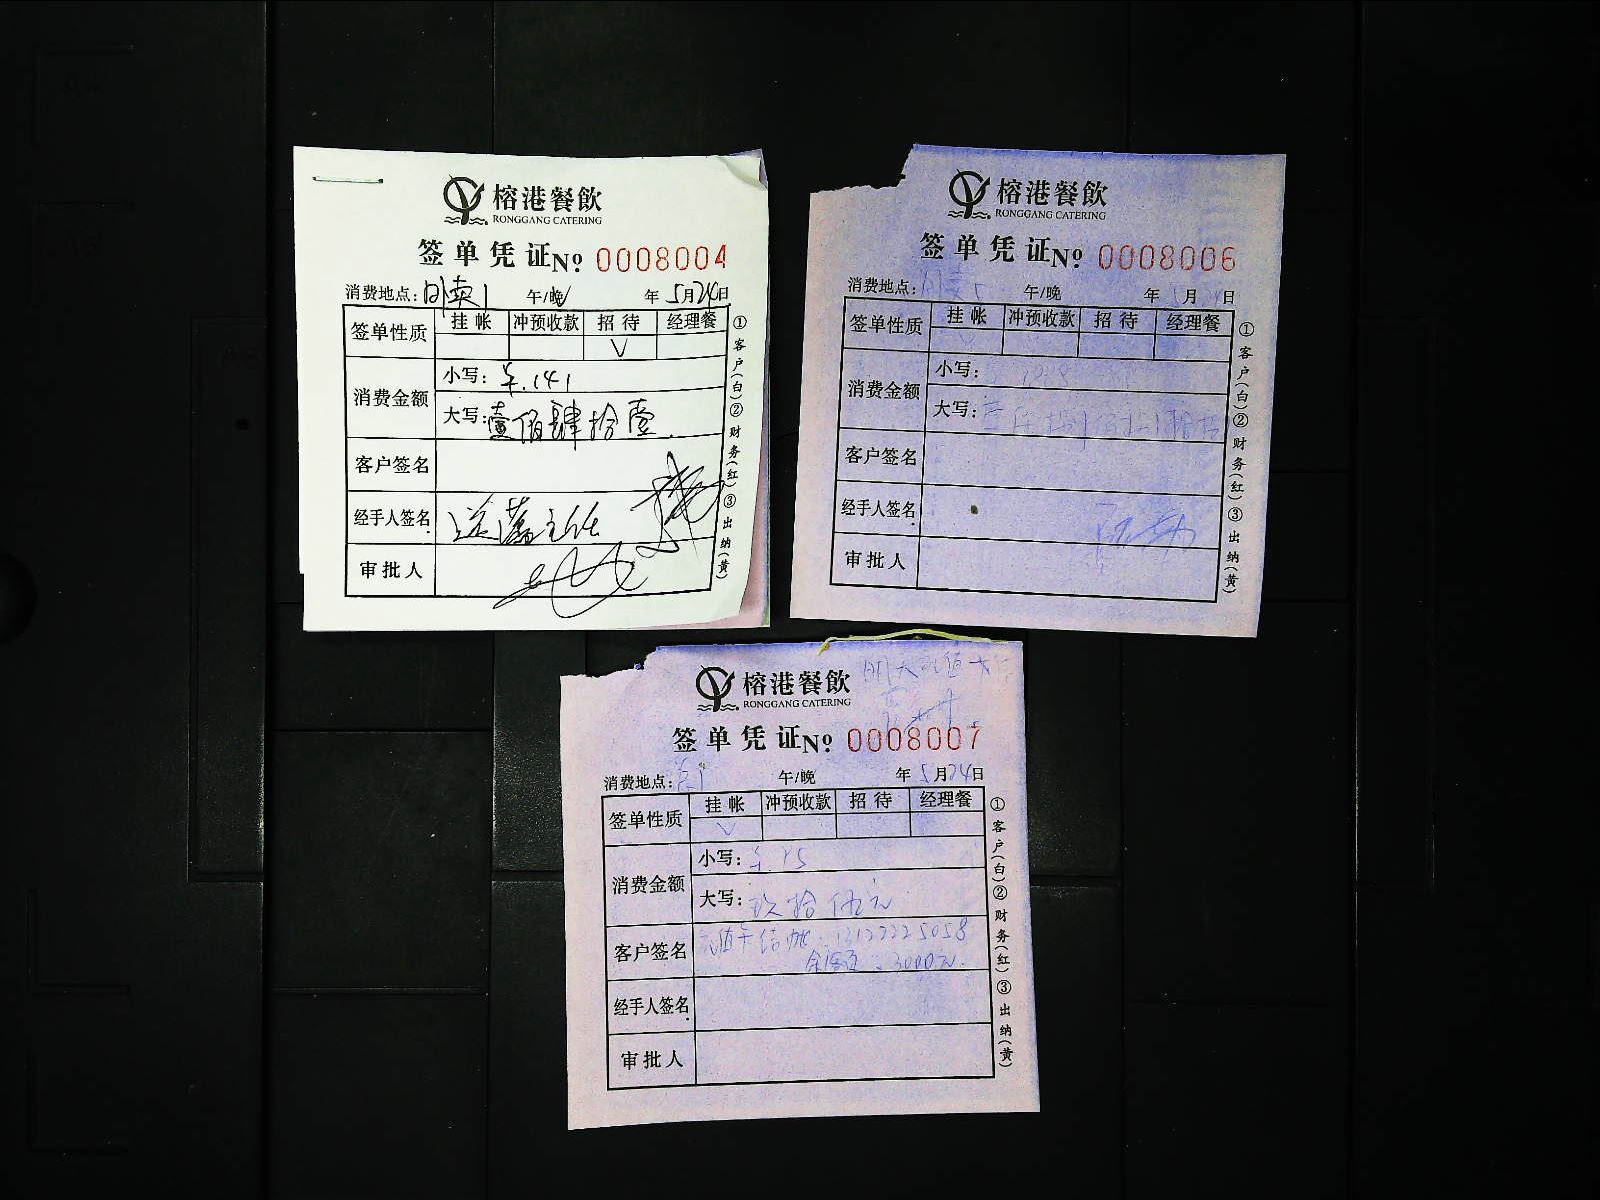 榕港餐飲
RONGGANG CATERING
签单凭证№ 0008004
消费地点：外卖1 午/晚 年 5月24日
签单性质 挂帐 冲预收款 招待 经理餐
V
消费金额 小写：羊.141
大写：壹佰肆拾壹.
客户签名
经手人签名 送 主任
审批人
①客户(白)②财务(红)③出纳(黄)
榕港餐飲
RONGGANG CATERING
签单凭证№ 0008006
消费地点：外卖 午/晚 年 5月24日
签单性质 挂帐 冲预收款 招待 经理餐
消费金额 小写：
大写：
客户签名
经手人签名
审批人
①客户(白)②财务(红)③出纳(黄)
榕港餐飲
RONGGANG CATERING
签单凭证№ 0008007
消费地点： 午/晚 年 5月24日
签单性质 挂帐 冲预收款 招待 经理餐
V
消费金额 小写：
大写：玖拾伍元
客户签名
经手人签名
审批人
①客户(白)②财务(红)③出纳(黄)